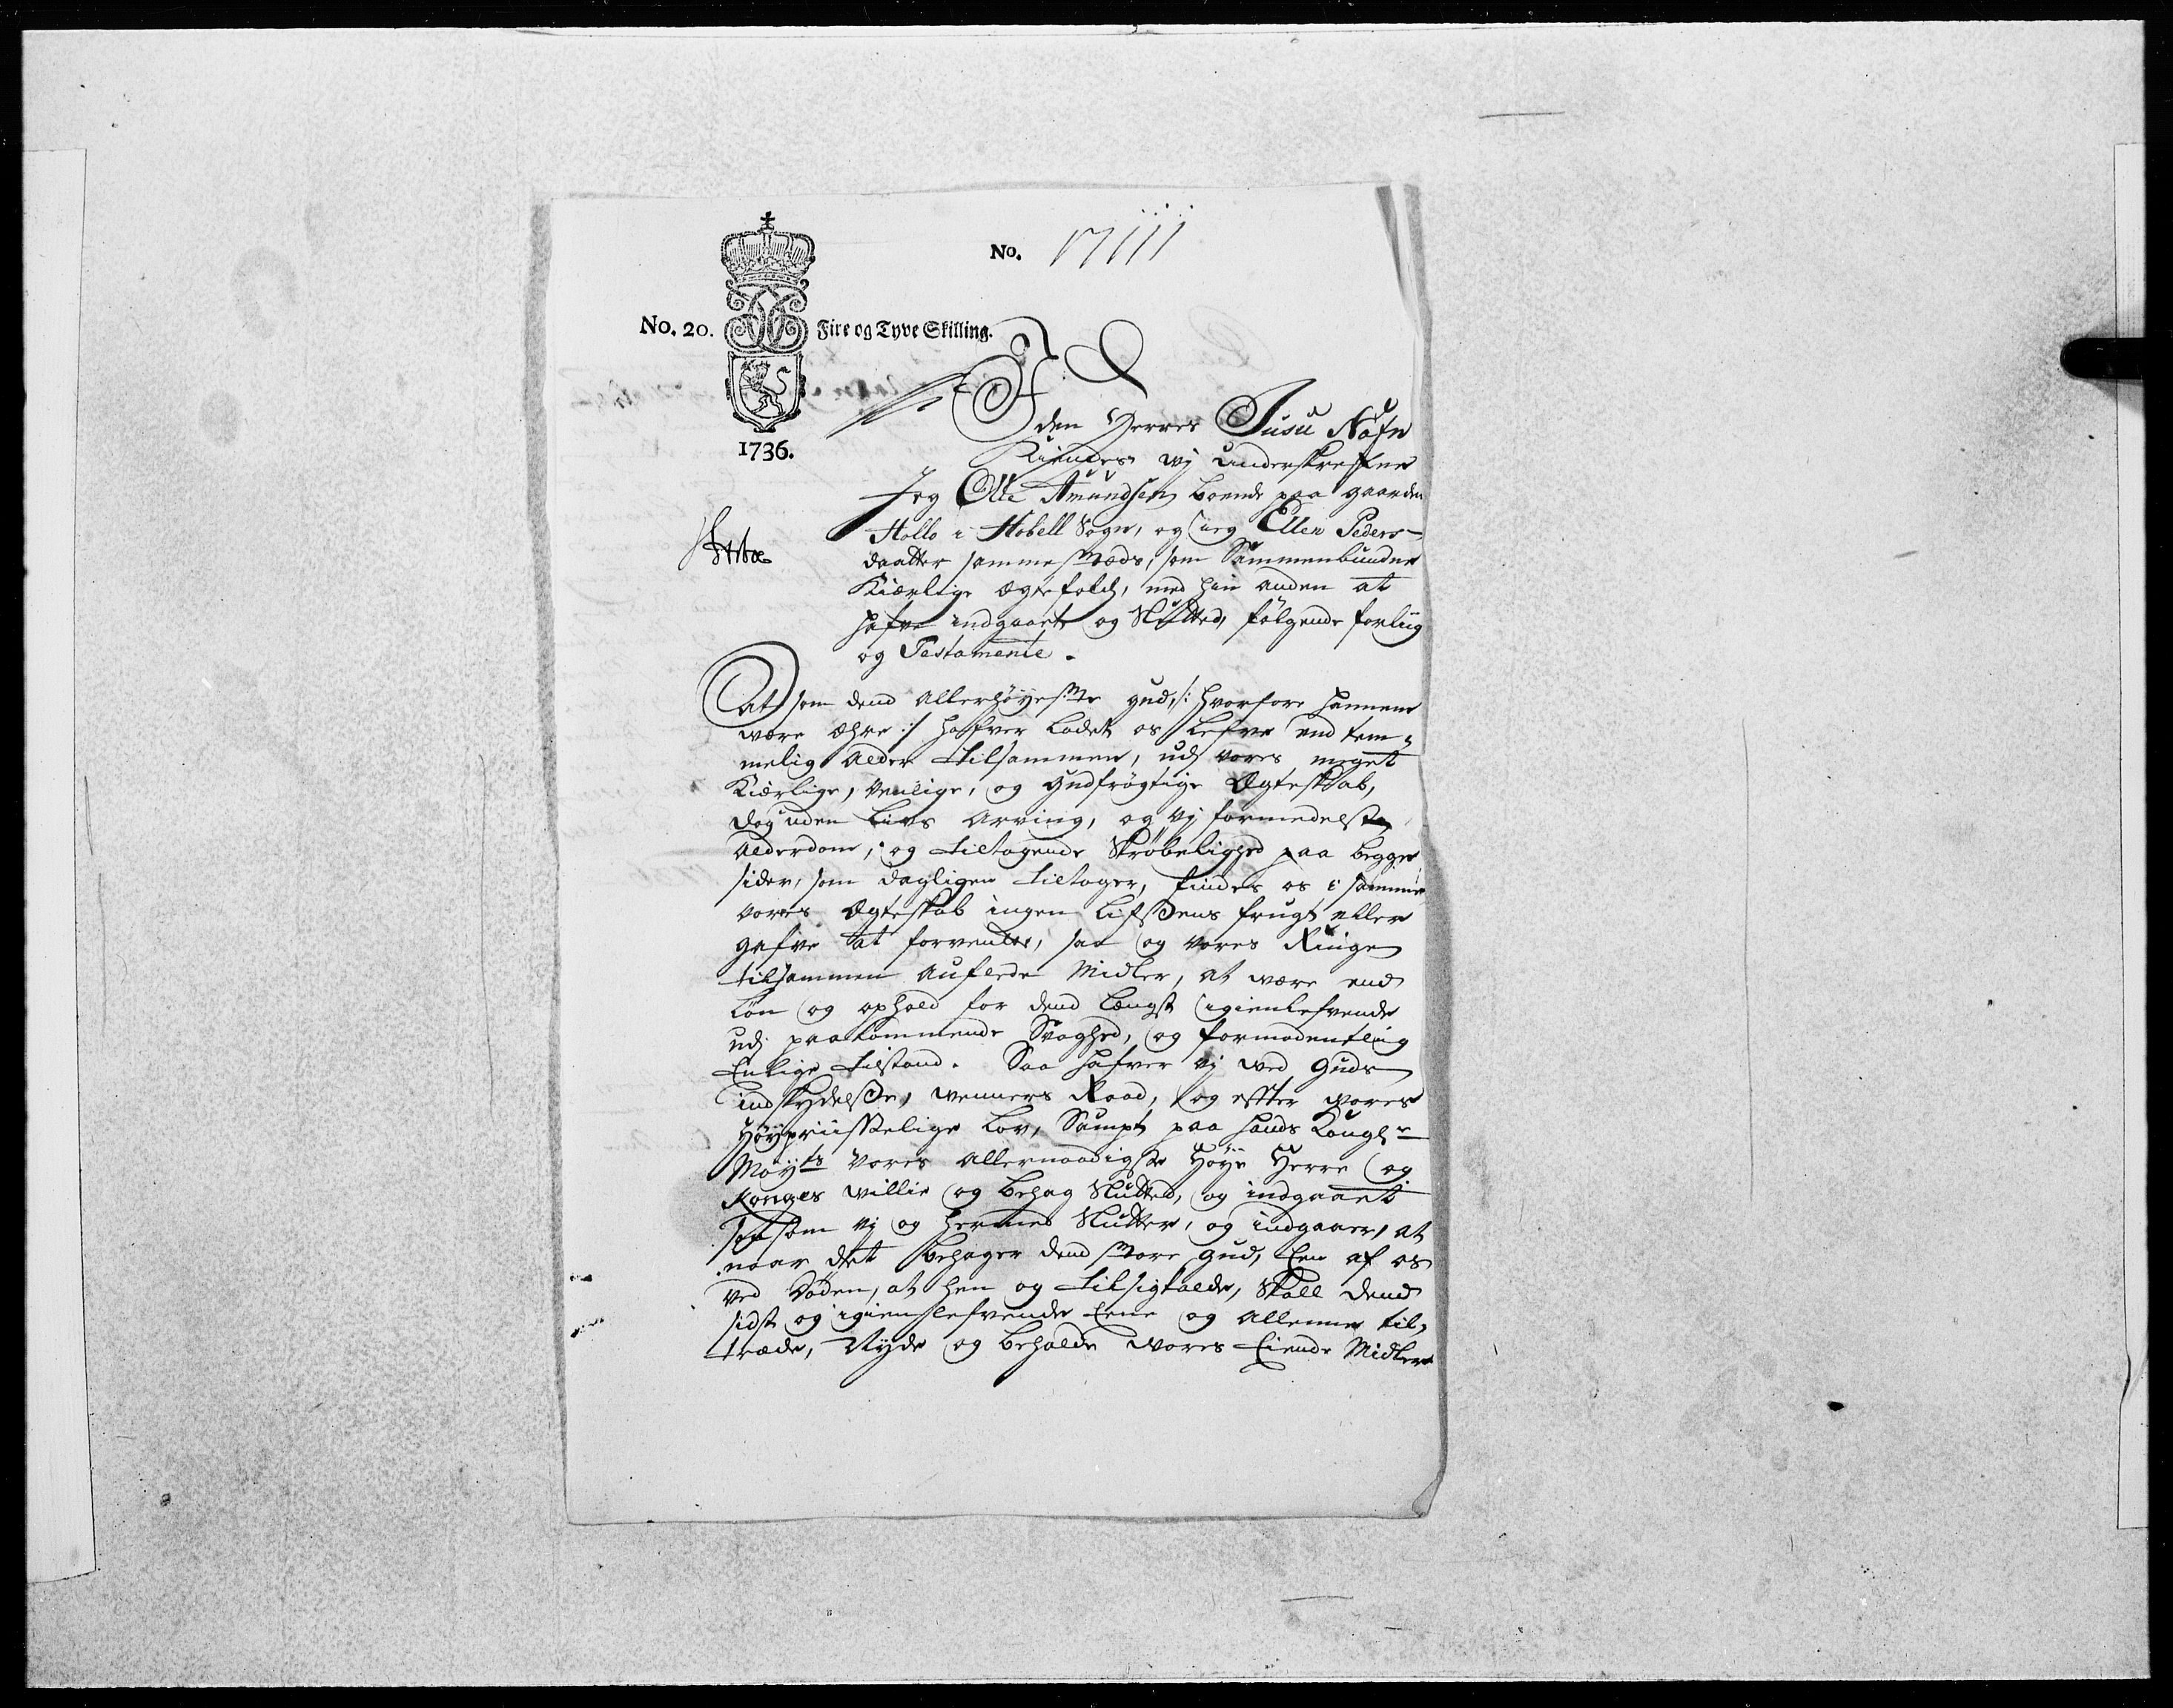 No. 17111
No. 20. Fire og Tyve Skilling.
1736.
I den Herres Jusu Nafn
Kiendes wj underskrefne
Jeg Olle Amundsen boende paa gaarden
Hollo i Hobell Sogn, og ieg Ellen Peders-
daatter sammesteds, som Sammenbundne
Kiærlige ægtefolch, med hin anden at
hafve indgaaet og Sluttet, følgende forliig
og Testamente.
At som dend Allerhöyeste gud, /: hvorfore hannem
være ære :/ hafver ladet os Lefve end tem-
melig Alder tilsammen, udj vores meget
Kiærlige, venlige, og gudfrøgtige Ægteskab,
dog uden Livs Arving, og vj formedelst
Alderdom, og tiltagende Skrøbelighed paa begge
sider, som dagligen tiltager, findes os i samme
vores Ægteskab ingen Lifsens frugt eller
gafve at forvente, saa og vores Ringe
tilsammen Auflede Midler, at være end
Løn og ophold for dend Længst igienlefvende
udj paakommende Svaghed, og formodentlig
Enlige tilstand. Saa hafver vj ved Guds
indskydelse, wenners Raad, og efter vores
Høypriisselige Lov, Sampt paa hands Kongl:
May:ts Vores Allernaadigste Höye Herre og
Konges willie og behag Sluttet, og indgaaet
saasom vj og hermed Slutter, og indgaaer, at
naar det behager dend store gud, Een af os
ved Døden, at hen og tilsigkalde, skall dend
sidst og igienlefvende Eene og Allene til-
træde, Nyde og beholde vores Eiende Midler